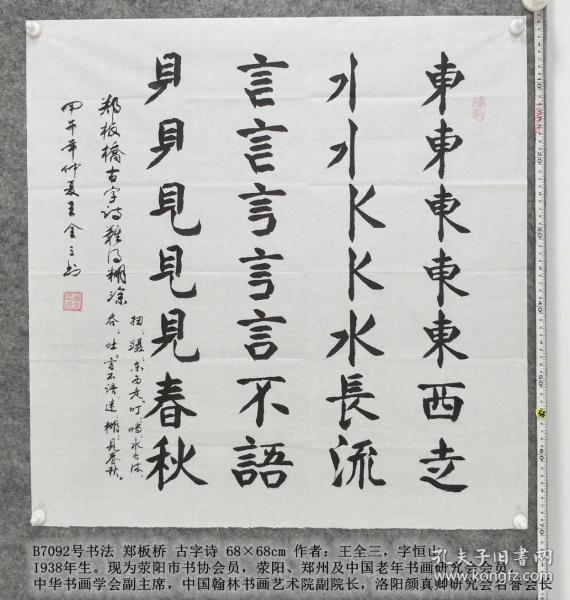 東東東東東西走
水長流
言言言言言不語
見見見春秋
郑板橋古字诗難得糊涂
东西走叮噹水长流
吞吐言不语逮糊見春秋。
甲午年仲夏王全三书
B7092号书法 郑板桥 古字诗 68×68cm 作者：王全三，字恒山，
1938年生。现为荥阳市书协会员，荥阳、郑州及中国老年书画研究会会员，
中华书画学会副主席，中国翰林书画艺术院副院长，洛阳颜真卿研究会名誉会长
孔夫子旧书网